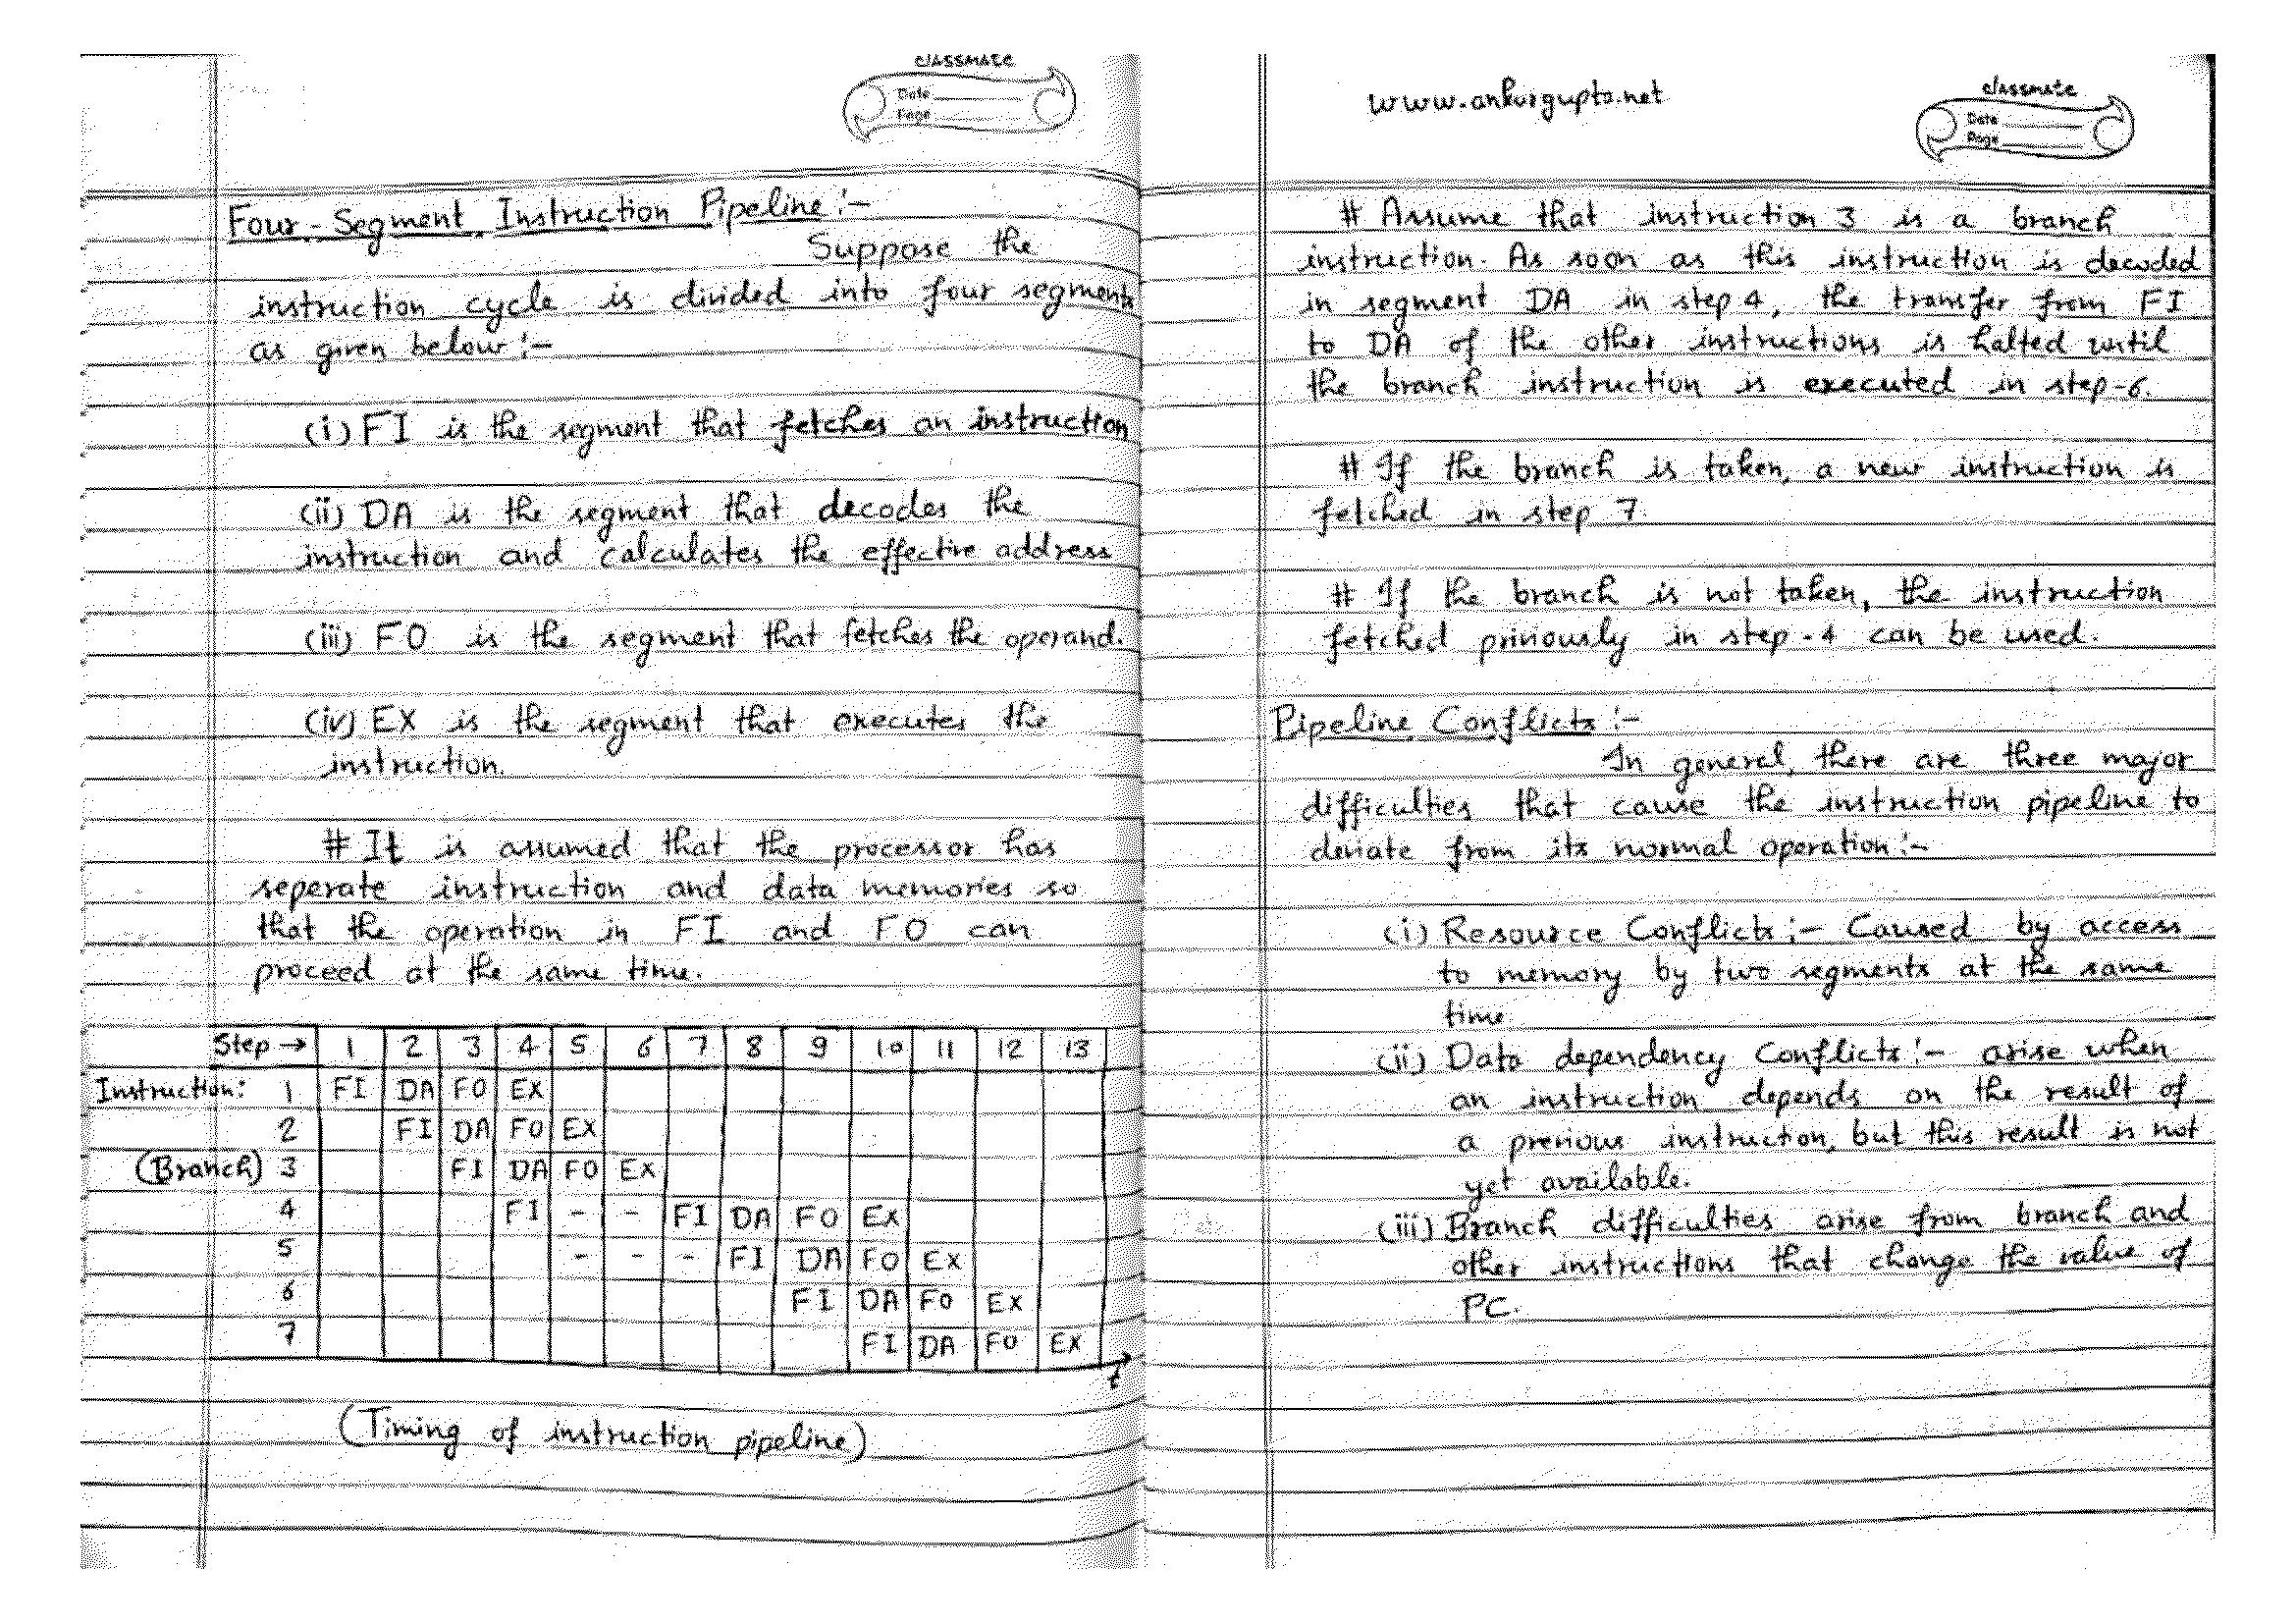 classmate
Date
Page
Four-Segment Instruction Pipeline :-
Suppose the
instruction cycle is divided into four segments
as given below :-
(i) FI is the segment that fetches an instruction
(ii) DA is the segment that decodes the
instruction and calculates the effective address
(iii) FO is the segment that fetches the operand.
(iv) EX is the segment that executes the
instruction.
# It is assumed that the processor has
seperate instruction and data memories so
that the operation in FI and FO can
proceed at the same time.
Step → 1 2 3 4 5 6 7 8 9 10 11 12 13
Instruction: 1 FI DA FO EX
2 FI DA FO EX
(Branch) 3 FI DA FO EX
4 FI - - FI DA FO EX
5 - - - FI DA FO EX
6 FI DA FO EX
7 FI DA FO EX
t
(Timing of instruction pipeline)
www.ankurgupta.net
classmate
Date
Page
# Assume that instruction 3 is a branch
instruction. As soon as this instruction is decoded
in segment DA in step 4, the transfer from FI
to DA of the other instructions is halted until
the branch instruction is executed in step-6.
# If the branch is taken, a new instruction is
fetched in step 7.
# If the branch is not taken, the instruction
fetched priviously in step-4 can be used.
Pipeline Conflicts :-
In general, there are three major
difficulties that cause the instruction pipeline to
deviate from its normal operation :-
(i) Resource Conflicts :- Caused by access
to memory by two segments at the same
time
(ii) Data dependency Conflicts :- arise when
an instruction depends on the result of
a previous instruction, but this result is not
yet available.
(iii) Branch difficulties arise from branch and
other instructions that change the value of
PC.